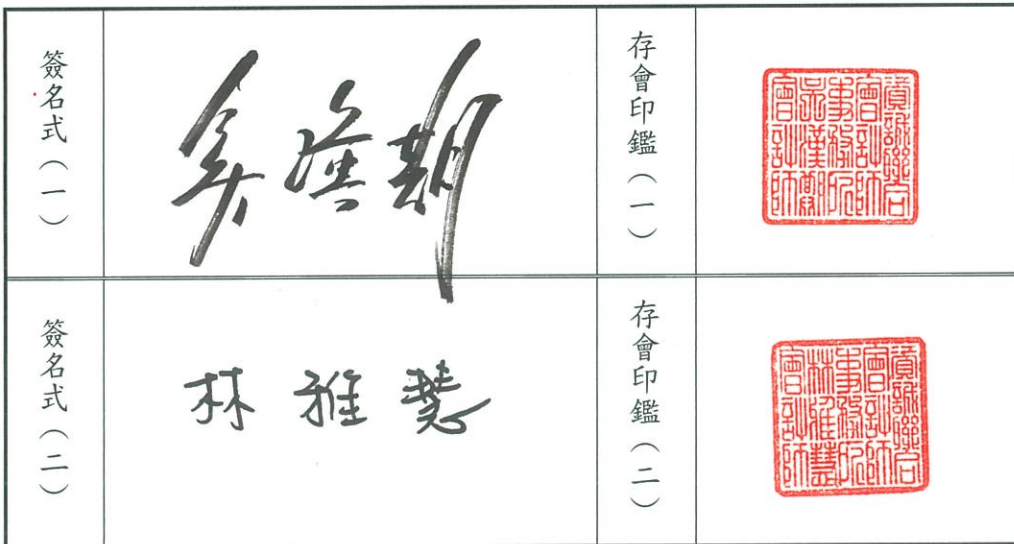 簽名式（一）
吳漢期
存會印鑑（一）
資誠聯合
會計師
事務所
吳漢期
會計師
簽名式（二）
林雅慧
存會印鑑（二）
資誠聯合
會計師
事務所
林雅慧
會計師